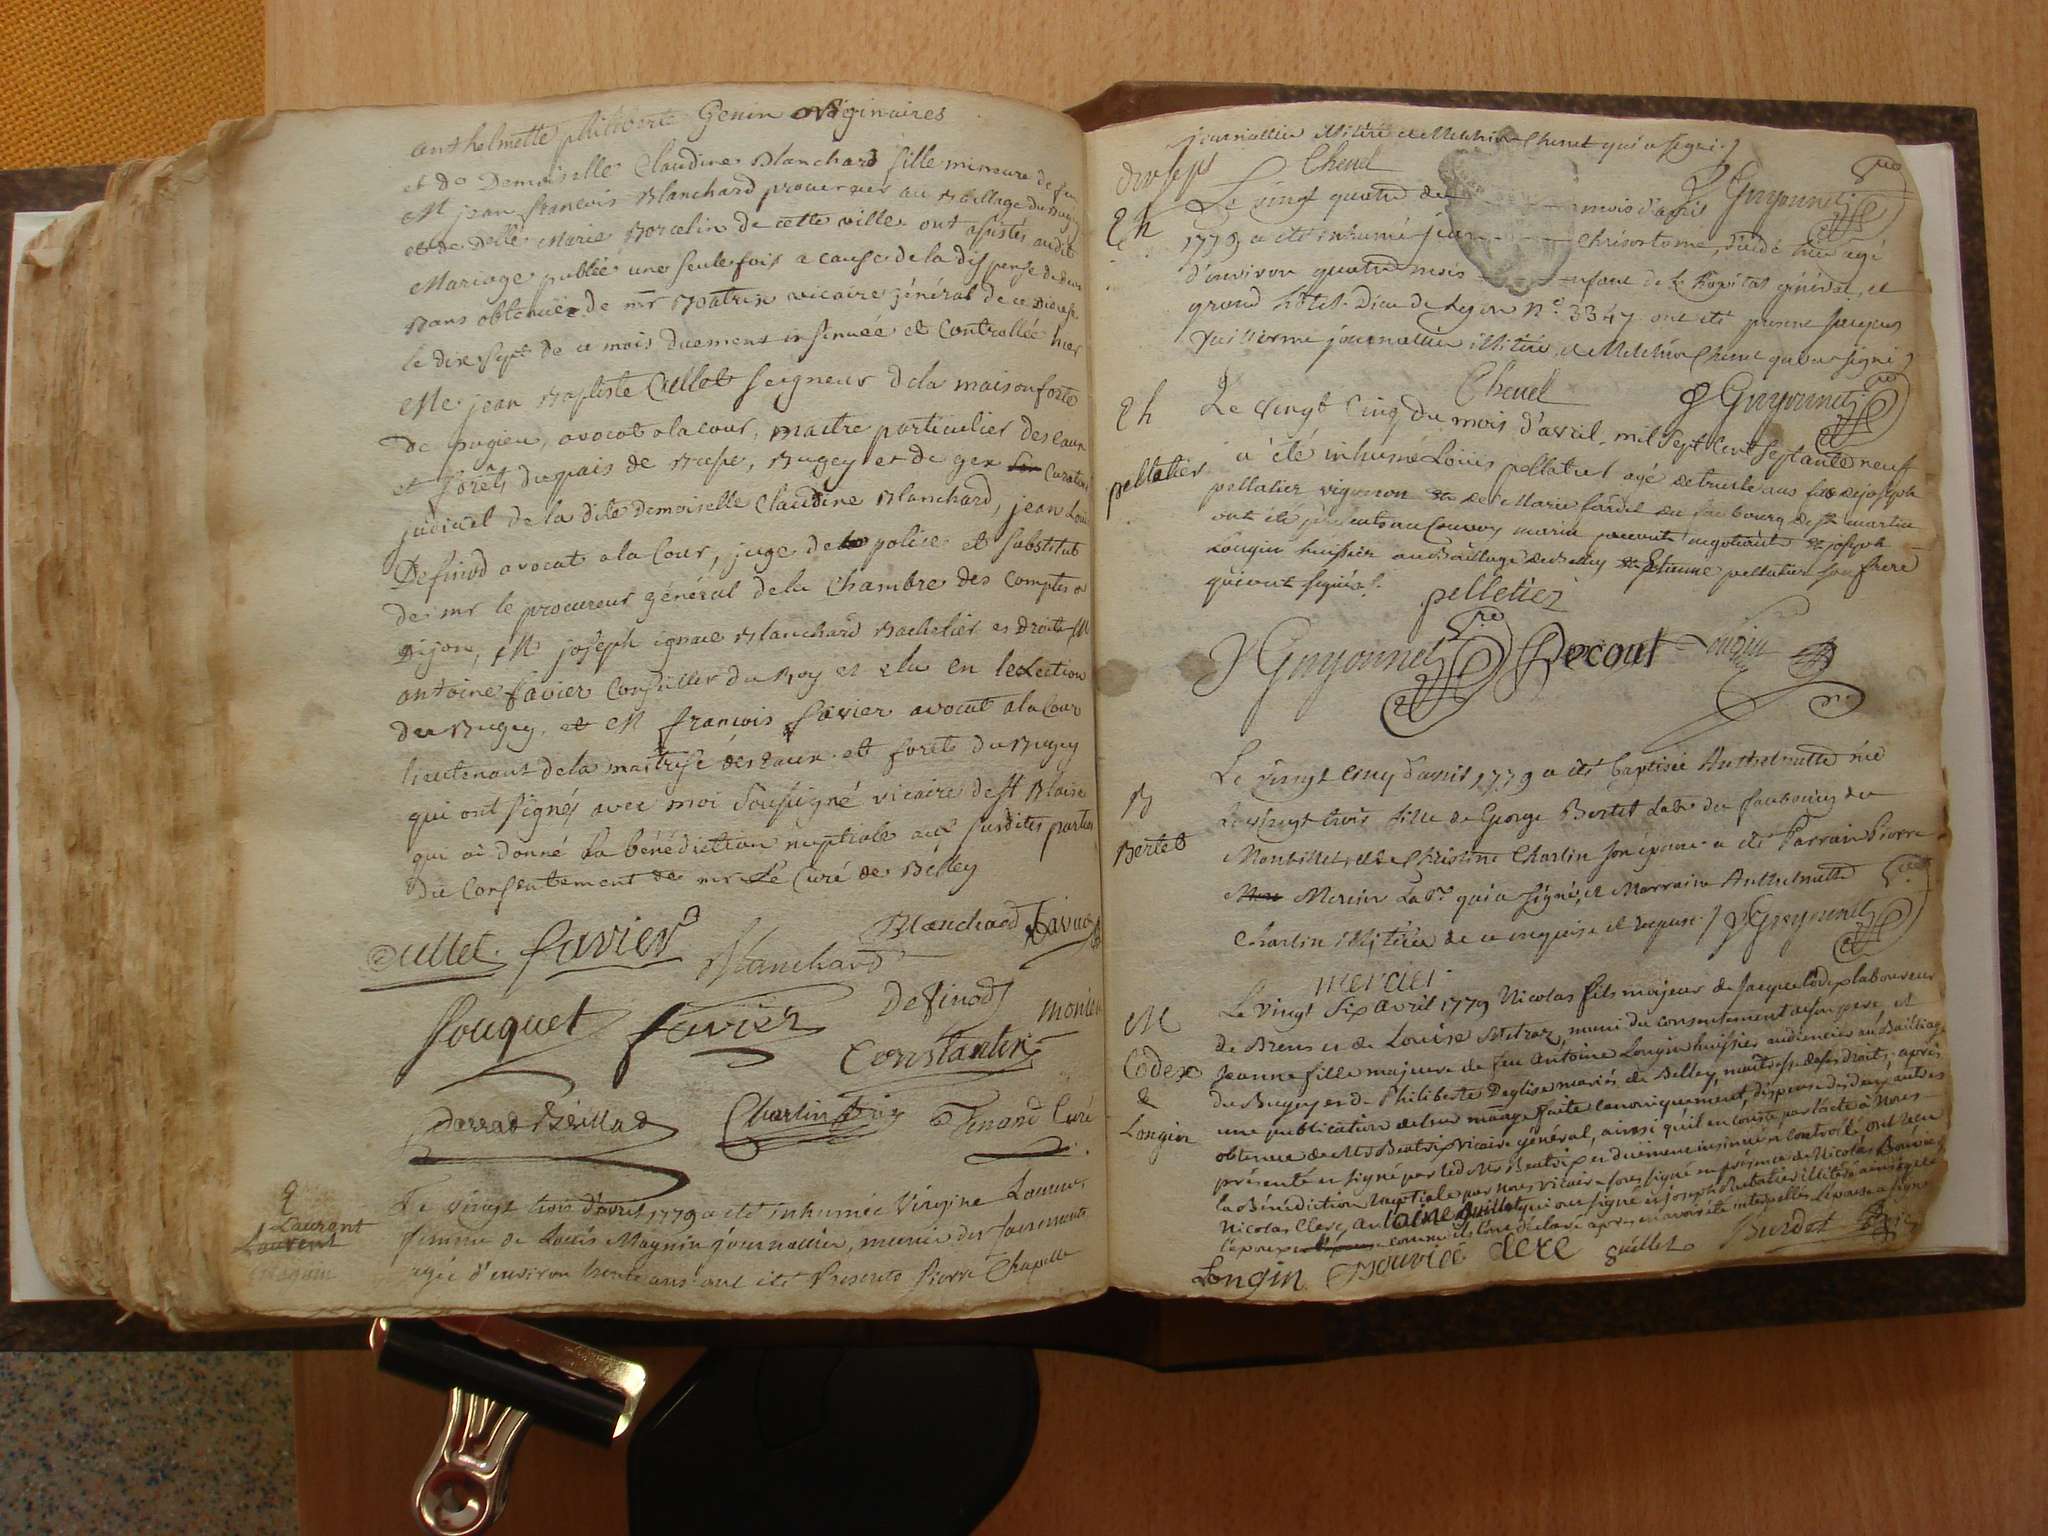 anthelmette philiberte Genin originaires
et de Demoiselle Claudine Blanchard fille mineure de feu
M jean françois Blanchard procureur au Baillage du Bugey
et de delle Marie Borcelin de cette ville ont assistés audit
Mariage publié une seule fois a cause de la dispense de deux
Bans obtenüe de mr Batrix vicaire général de ce Diocese
le dix sept de ce mois duement insinuée et Controllée hier
Me jean Baptiste Cullet Seigneur de la maison forte
de pugieu, avocat a la cour, maitre particulier des eaux
et forêts du païs de Bresse, Bugey et de gex Curateur
judiciel de la dite demoiselle Claudine Blanchard, jean Louis
Definod avocat a la Cour, juge de police et Substitut
de mr le procureur général de la Chambre des Comptes a
Dijon, M joseph ignace Blanchard Bachelier es Droits M
antoine favier Conseiller du Roy et elu en lelection
du Bugey, et M françois favier avocat a la Cour
lieutenant de la maitrise des eaux et forets du Bugey
qui ont signés avec moi Soussigné vicaire de St Blaise
qui ai donné la bénédiction nuptiale aux susdites parties
du Consentement de mr Le Curé de Bélley
Cullet favier Blanchard Blanchard favier
fouquet favier Definod
Constantin
Charlin Tenand Curé
Laurent
Laurent
Magnin
Le vingt trois d'avril 1779 a eté inhumée Virgine Laurent
femme de Loüis Magnin journallier, munie des Sacrements
agée d'environ trente ans ont eté Presents Pierre Chapelle
journallier illitéré et Melchior Chenet qui a signé
Chenet Guyonnet
Le vingt quatre du mois d'avril
1779 a eté inhumé jean Chrisostome, décédé hier agé
d'environ quatre mois enfant de l'hopital général et
grand hôtel-Dieu de Lyon N° 3347 ont eté present jacques
Vuillerme journallier illitéré, et Melchior Chenet qui a signé
Chenet Guyonnet
pelletier
Le vingt Cinq du mois d'avril mil sept cent septante neuf
a été inhumé Loüis pellatier agé de trente ans fils de joseph
pellatier vigneron et de Marie fardel du faubourg de St martin
ont été présents au Convoy marin negotiant et joseph
Longin huissier au Bailliage de Belley et Etienne pellatier son frere
qui ont signés.
pelletier
Guyonnet Longin
B
Bertet
Le vingt cinq d'avril 1779 a eté baptisée Anthelmette née
Le vingt trois fille de George Bertet Labr du faubourg du
Montillet, et de Christine Charlin son épouse a eté Parrain Pierre
Mercier Labr. qui a signé, et Marraine Anthelmette
Charlin illitérée de ce enquise et requise Guyonnet
mercier
M
Codex
&
Longin
Le vingt Six Avril 1779 Nicolas fils majeur de Jacque Codex laboureur
de Brens et de Louise Metraz, muni du consentement de son pere, et
Jeanne fille majeure de feu Antoine Longin huissier audiencier au Bailliage
du Bugey et de Philiberte Deglise mariés de Belley, maitresse de ses droits, après
une publication de leur mariage faite canoniquement, dispense des deux autres
obtenue de Mr Beatrix vicaire général, ainsi qu'il en conste par l'acte à nous
présenté et signé par led Mr Beatrix et duement insinué et controllé ont reçu
la Bénédiction Nuptiale par nous vicaire soussigné en présence de Nicolas Bouvier
Nicolas Clerc, antoine guillet qui ont signé et joseph Pelatier illitéré
l'epoux comme ils l'ont déclaré apres en avoir été interpellés L'epouse a signé
Longin Bouvier Clerc guillet Burdet